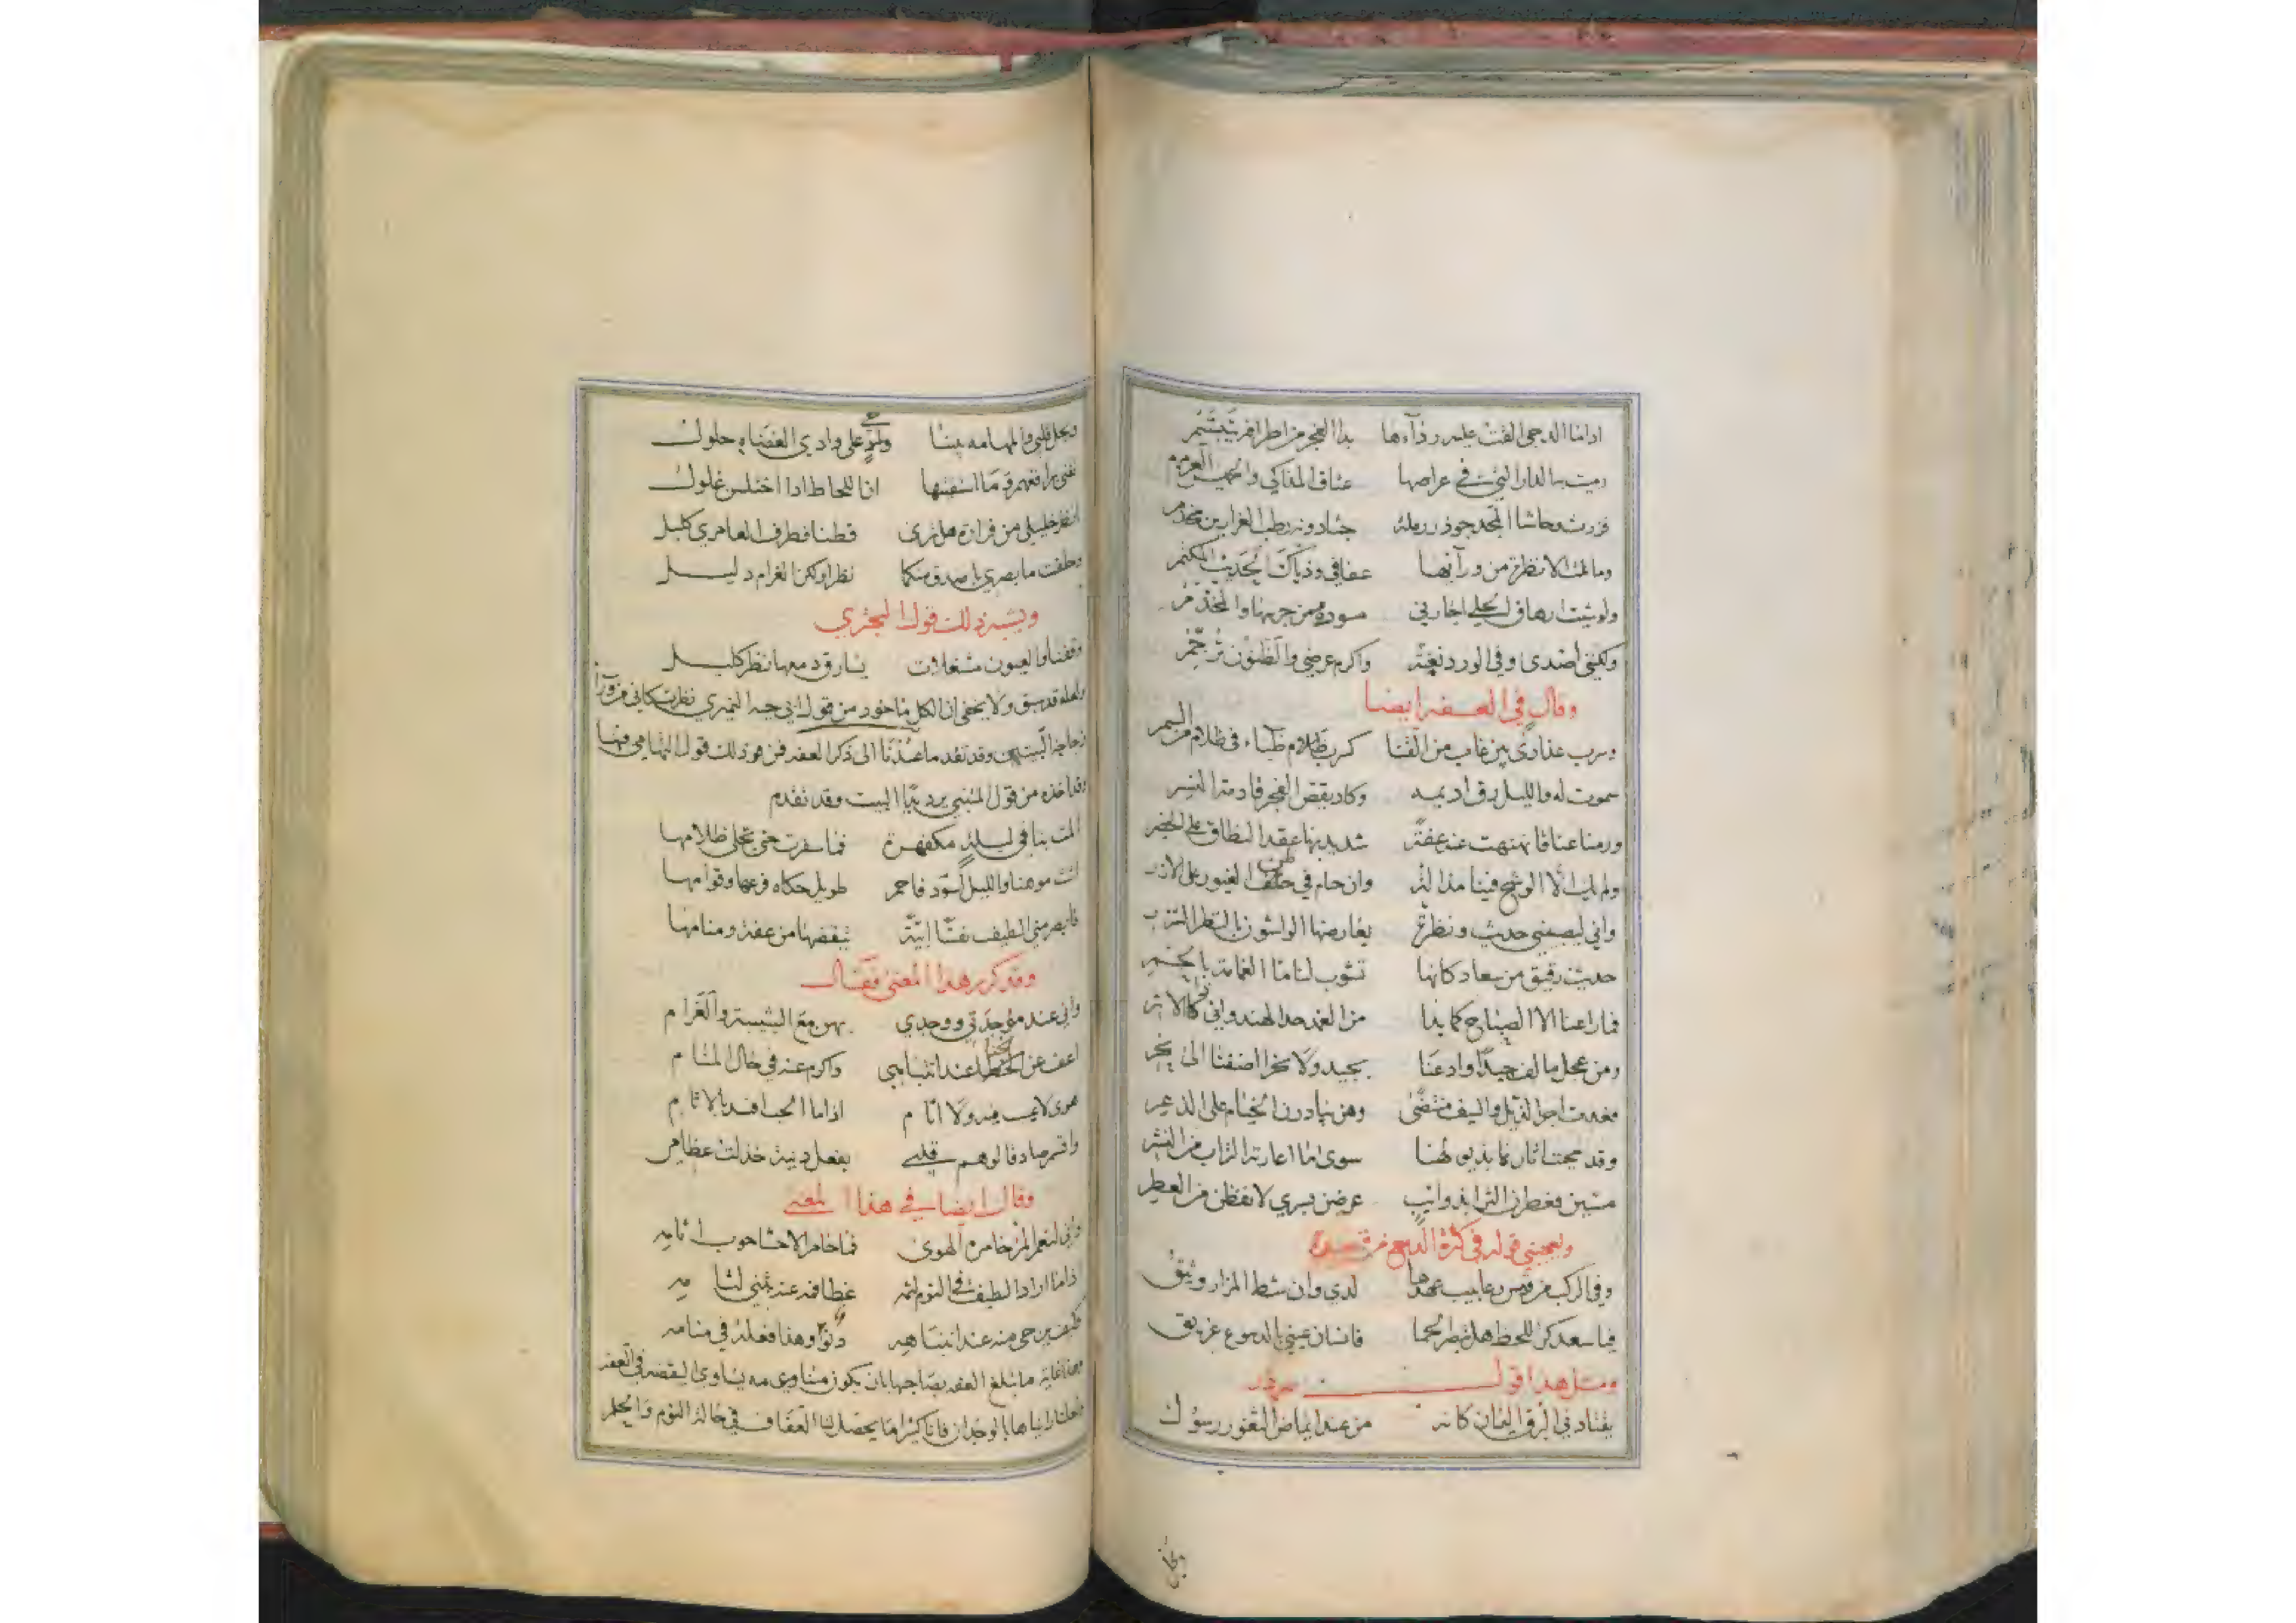 اذا ما الدجى القت عليه رداءها بدا الفجر من اطرافه يتبسم
رميت بها الدار التي في عراصها عتاق المذاكي والعرمرم
فزرت وحاشا المجد جوذر رملة
وما نلت الا نظرة من ورائها عفافي وذياك الحديث المكتم
ولو شئت ارهاف الحلي اجارني سوده من جرسها والمخدم
ولكنني اصدى وفي الورد نغبة واكرم عرضي والظنون ترجم
وقال في العفة ايضا
وسرب عذارى بين غاب من القنا كسرب ظباء في ظلام من السمر
سموت له والليل رق اديمه وكاد يقض الفجر قادمة النسر
ورمنا عناقا نهنهت عنه عفة شديد بها عقد النطاق على الخصر
ولم يك الا الوشح فينا مذالة وان حام في ظن الغيور على الازر
واني ليصبيني حديث ونظرة يعارضها الواشون بالنظر الشزر
حديث رقيق من سعاد كانها تشوب لنا ماء الغمامة بالخمر
فما راعنا الا الصباح كما بدا من الغمد حد الهندواني ذي الاثر
ومن عجل ما لف جيدا وادعنا بجيد ولا نحرا اضفنا الى نحر
فعدت اجر الذيل والسيف منتضى وهن يبادرن الخيام على الذعر
وقد محيت اثارنا بذيولها سوى ما اعارته التراب من النشر
مشين فعطرن الثرا بذوائب عرضن بسري لا نفضن من العطر
ويعجبني قوله في كثرة الدمع من قصيدة
وفي الركب من قيس رعابيب عهدها لدي وان شط المزار وثيق
فيا سعد كر اللحظ هل تبصر الحما فانسان عيني بالدموع غريق
ومثل هذا قول مهيار
يقتادني البرق اليمان كانه من عند ايماض الثغور رسول
ويحل قلبي والمهامه بيننا ولمن على وادي الغضناه حلول
انا للحاظ اذا اختلسن غلول
انظر خليلي من فزارة هل ترى قطنا فطرف العامري كليل
وحلفت ما بصري باصدق منكما نظرا ولكن الغرام دليل
ويشبه ذلك قول البحتري
وقفنا والعيون مشغلات يارق دمعها نظر كليل
ولعله قد سبق ولا يخفى ان الكل ماخوذ من قول ابي حية النميري نظرت كاني من ورآء
زجاجة البيتين وقد تقدما عدنا الى ذكر العفة فمن ذلك قول التهامي فيها
وقد اخذه من قول المتنبي يرد يدا البيت وقد تقدم
المت بنا في ليلة مكفهرة فما سفرت حتى تجلى ظلامها
اتت موهنا والليل اسود فاحم طويل حكاه فرعها وقوامها
فابصر مني الطيف نفسا ابية تيقضها من عفة ومنامها
وقد كرر هذا المعنى فقال
واني عند موجدتي ووجدي بهن مع الشبيبة والغرام
اعف عن الخنا عند انتباهي واكرم عنه في حال المنام
هوى لا عيب فيه ولا اثام اذا ما الحب افسد بالاثام
واقسم ما دفا لوهم قلبي بفعل دنية خذلت عظامي
وقال ايضا في هذا المعنى
واني لنعم المرء خامره الهوى فما خامر الاحشا حوب اثامه
اذا ما اراد الطيف في النوم لثمه غطا فمه عنه بمثني لثامه
فكيف يرجى منه عند انتباهه دنو وهذا فعله في منامه
وهذا غاية ما تبلغ العفة بصاحبها بان يكون متساوي مه يساوى اليقضه في العفه
فانا كثيرا ما يحصل لنا العفاف في حالة النوم والحلم
وبحل